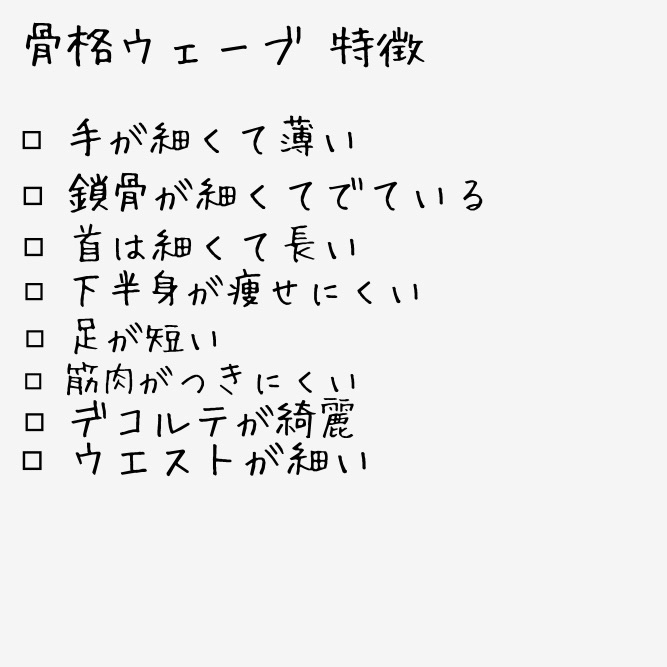 骨格ウェーブ 特徴
□ 手が細くて薄い
□ 鎖骨が細くてでている
□ 首は細くて長い
□ 下半身が痩せにくい
□ 足が短い
□ 筋肉がつきにくい
□ デコルテが綺麗
□ ウエストが細い